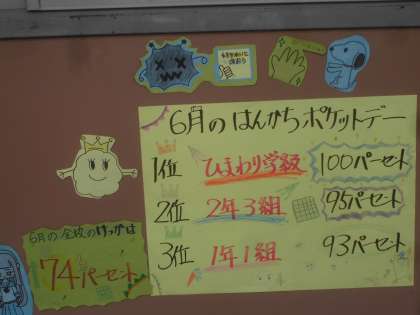 6月のはんかちポケットデー
1位 ひまわり学級 100パーセント
2位 2年3組 95パーセント
3位 1年1組 93パーセント
6月の全校のけっかは
74パーセント